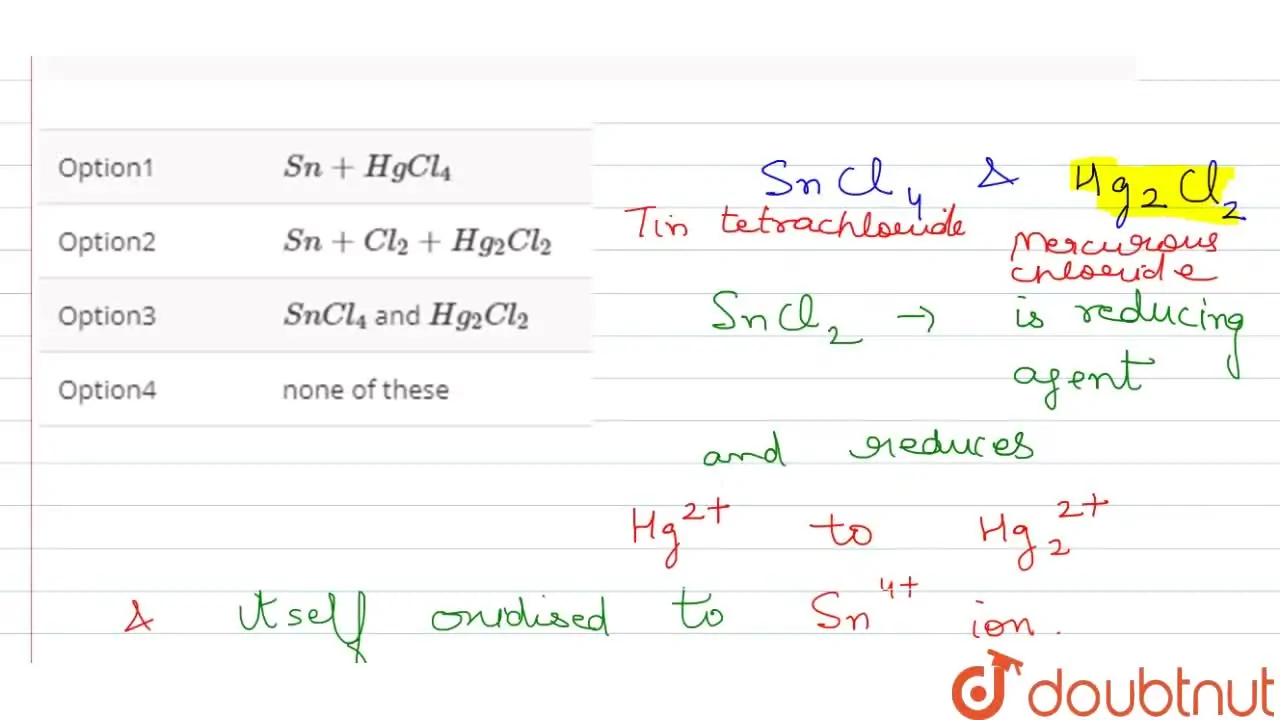 Option1 Sn + HgCl₄
Option2 Sn + Cl₂ + Hg₂Cl₂
Option3 SnCl₄ and Hg₂Cl₂
Option4 none of these
SnCl₄ & Hg₂Cl₂
Tin tetrachloride Mercurous chloride
SnCl₂ → is reducing
agent
and reduces
Hg²⁺ to Hg₂²⁺
& itself oxidised to Sn⁴⁺ ion.
doubtnut